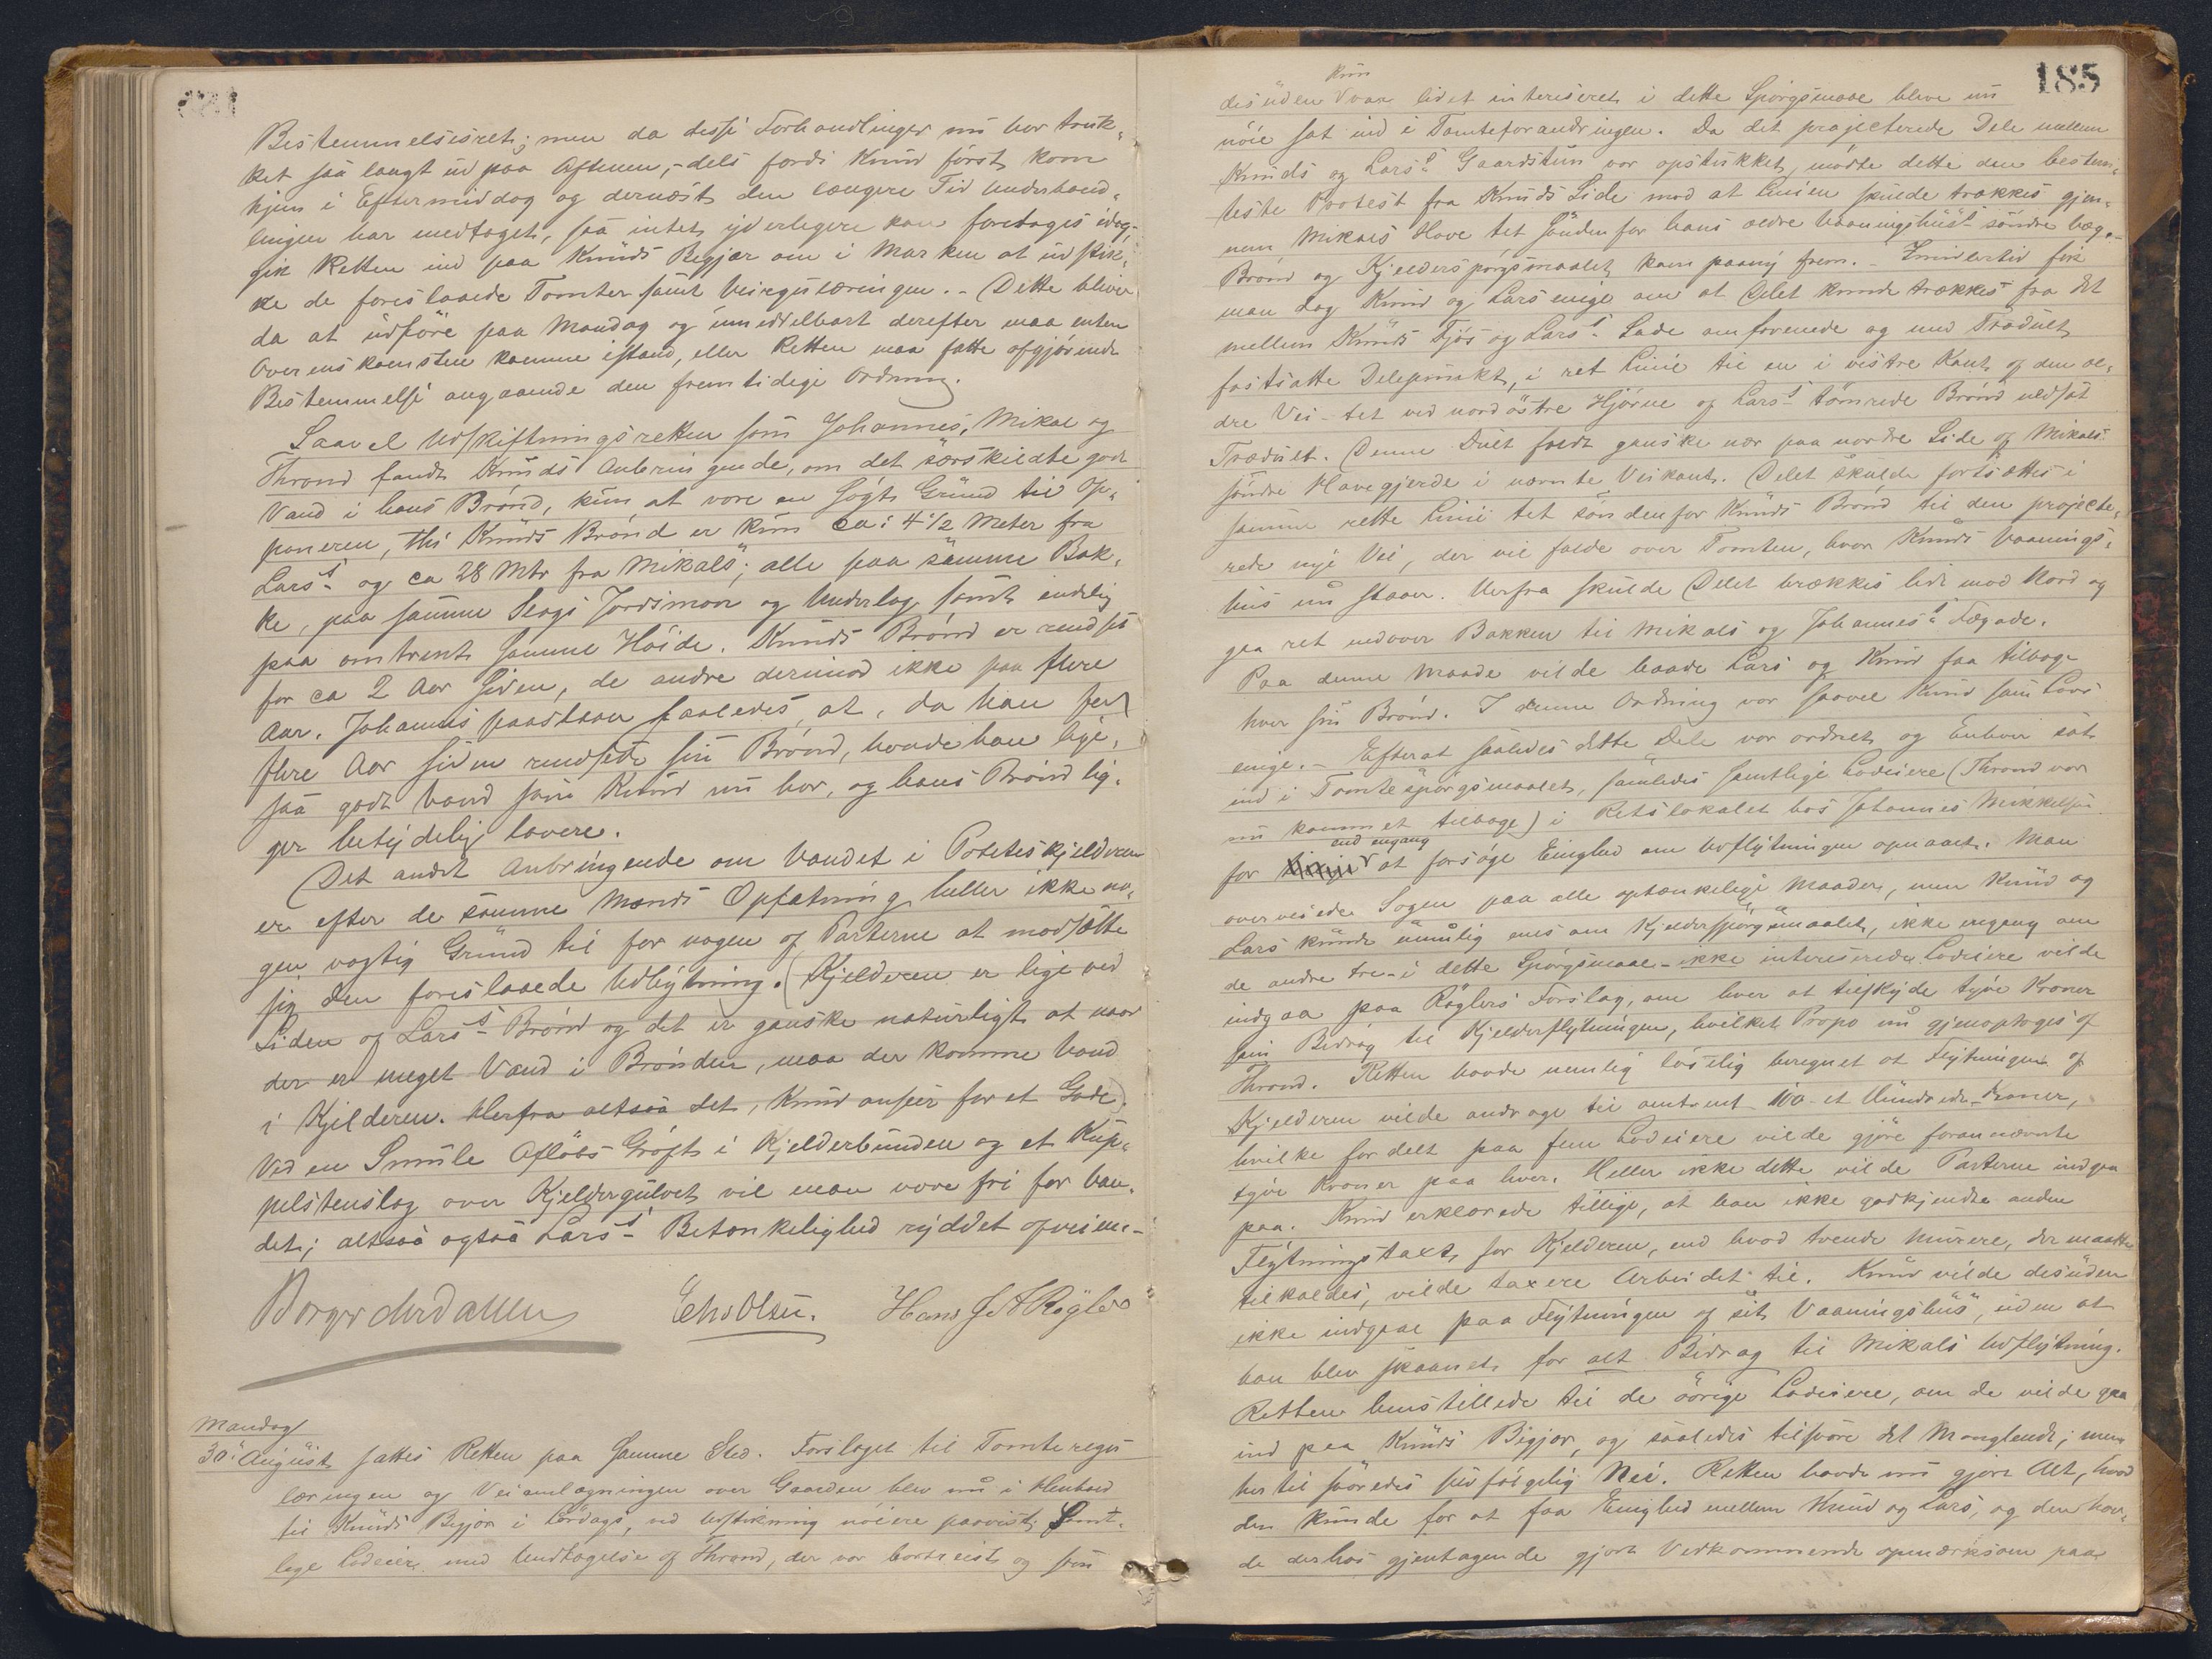 Bestemmelsesret; men da disse Forhandlinger nu har truk-
ket saa langt ud paa Aftenen, – dels fordi Knud först kom
hjem i Eftermiddag og dernæst den længere Tid Underhand-
lingen har medtaget, saa intet yderlegere kan foretages idag,
gik Retten ind paa Knuds Begjær om i Marken at udstik-
ke de foreslaaede Tomter samt Veiregulæringen. – Dette bliver
da at udföre paa Mandag og umiddelbart derefter maa enten
Overenskomsten komme istand, eller Retten maa fatte afgjörende
Bestemmelse angaaende den fremtidige Ordning.
Saavel Udskiftningsretten som Johannes, Mikal og
Thrond fandt Knuds Anbringende, om det særskildte godt
Vand i hans Brönd, kun at være en sögt Grund til Op-
poneren, thi Knuds Brönd er kun ca: 4 1/2 Meter fra
Lars's og ca 28 Mtr fra Mikals; alle paa samme Bak-
ke, paa samme Slags Jordsmon og Underlag samt endelig
paa omtrent samme Höide. Knuds Brönd er rendset
for ca 2 Aar siden, de andre derimod ikke paa flere
Aar. Johannes paastaar saaledes, at, da han for
flere Aar siden rendsede sin Brönd, havde han lige-
saa godt Vand som Knud nu har, og hans Brönd lig-
ger betydelig lavere.
Det andet Anbringende om Vandet i Poteteskjelderen
er efter de samme Mænds Opfatning heller ikke no-
gen vægtig Grund til for nogen af Parterne at modsætte
sig den foreslaaede Udbytning. (Kjelderen er lige ved
Siden af Lars's Brönd og det er ganske naturligt at naar
der er meget Vand i Brönden, maa der komme Vand
i Kjelderen. Herfra altsaa det, Knud anseer for et Gode).
Ved en Smule Aflöbs Gröft i Kjelderbunden og et Kup-
pelstenslag over Kjeldergulvet vil man være fri for Van-
det; altsaa ogsaa Lars's Betænkelighed ryddet afveien. –
Borger Dahlen Chr Olsen. Hans J A Rögler
Mandag
30' August sattes Retten paa samme Sted. Forslaget til Tomteregu
læringen og Veianlægningen over Gaarden blev nu i Henhold
til Knuds Begjær i Lördags, ved Udstikning nöiere paavist. Samt-
lige Lodeiere med Undtagelse af Thrond, der var bortreist og som
185
kun
desuden var lidet interiseret i dette Spörgsmaal blev nu
nöie sat ind i Tomteforandringen. Da det projecterede Dele mellem
Knuds og Lars's Gaardstun var opstukket, mödte dette den bestem-
teste Protest fra Knuds Side mod at Linien skulde trækkes gjen-
nem Mikals Have tet sönden for hans ældre Vaaningshus's söndre Væg. –
Brönd og Kjelderspörgsmaalet kom paany frem. – Imidlertid fik
man dog Knud og Lars enige om at Delet kunde trækkes fra det
mellem Knuds Fjös og Lars's Lade omforenede og med Træduelt
fastsatte Delepunkt, i ret Linie til en i vestre Kant af den æl-
dre Vei – tet ved nordöstre Hjörne af Lars's tömrede Brönd nedsat
Træduelt. Denne Duelt faldt ganske nær paa nordre Side af Mikals
söndre Havegjerde i nævnte Veikant. Delet skulde fortsættes i
samme rette Linie tet sönden for Knuds Brönd til den projecte-
rede nye Vei, der vil falde over Tomten, hvor Knuds Vaanings-
hus nu staaer. Herfra skulde Delet brækkes lidt mod Nord og
gaa ret nedover Bakken til Mikals og Johannes's Fægade.
Paa denne Maade vilde baade Lars og Knud faa tilbage
hver sin Brönd. I denne Ordning var saavel Knud som Lars
enige. – Efterat saaledes dette Dele var ordnet og Enhver sat
ind i Tomtespörgsmaalet, samledes samtlige Lodeiere (Thrond var
nu kommet tilbage) i Retslokalet hos Johannes Mikkelsen
end engang
for at forsöge Enighed om Udflytningen opnaaet. Man
overveiede Sagen paa alle optænkelige Maader, men Knud og
Lars kunde umulig enes om Kjelderspörgsmaalet, ikke engang om
de andre tre – i dette Spörgsmaal – ikke interiserede Lodeiere vilde
indgaa paa Röglers Forslag, om hver at tilskyde tyve Kroner
som Bidrag til Kjelderflytningen, hvilket Propo nu gjenoptoges af
Thrond. Retten havde nemlig löselig beregnet at Flytningen af
Kjelderen vilde andrage til omtrent 100 – et Hundrede – Kroner,
hvilke fordelt paa fem Lodeiere vilde gjöre forannævnte
tyve Kroner paa hver. Heller ikke dette vilde Parterne indgaa
paa. Knud erklærede tillige, at han ikke godkjendte anden
Flytningstaxt for Kjelderen, end hvad tvende Murere, der maatte
tilkaldes, vilde taxere Arbeidet til. Knud vilde desuden
ikke indgaae paa Flytningen af sit Vaaningshus, uden at
han blev skaanet for alt Bidrag til Mikals Udflytning.
Retten henstillede til de övrige Lodeiere, om de vilde gaa
ind paa Knuds Begjær, og saaledes tilsvare det Manglende; men
hertil svaredes selvfölgelig Nei. Retten havde nu gjort Alt, hvad
den kunde for at faa Enighed mellem Knud og Lars, og den hav-
de derhos gjentagende gjort Vedkommende opmærksom paa